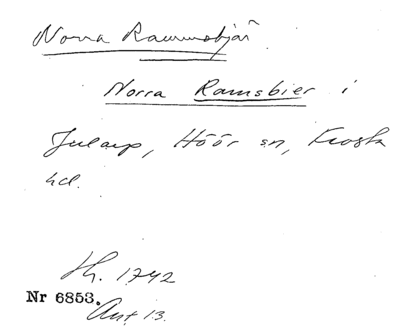 Norra Rammsbjär
Norra Ramsbier i
Jularp, Höör sn, Frosta
hd.
Jb. 1742
Nr 6853.
Ant 13.